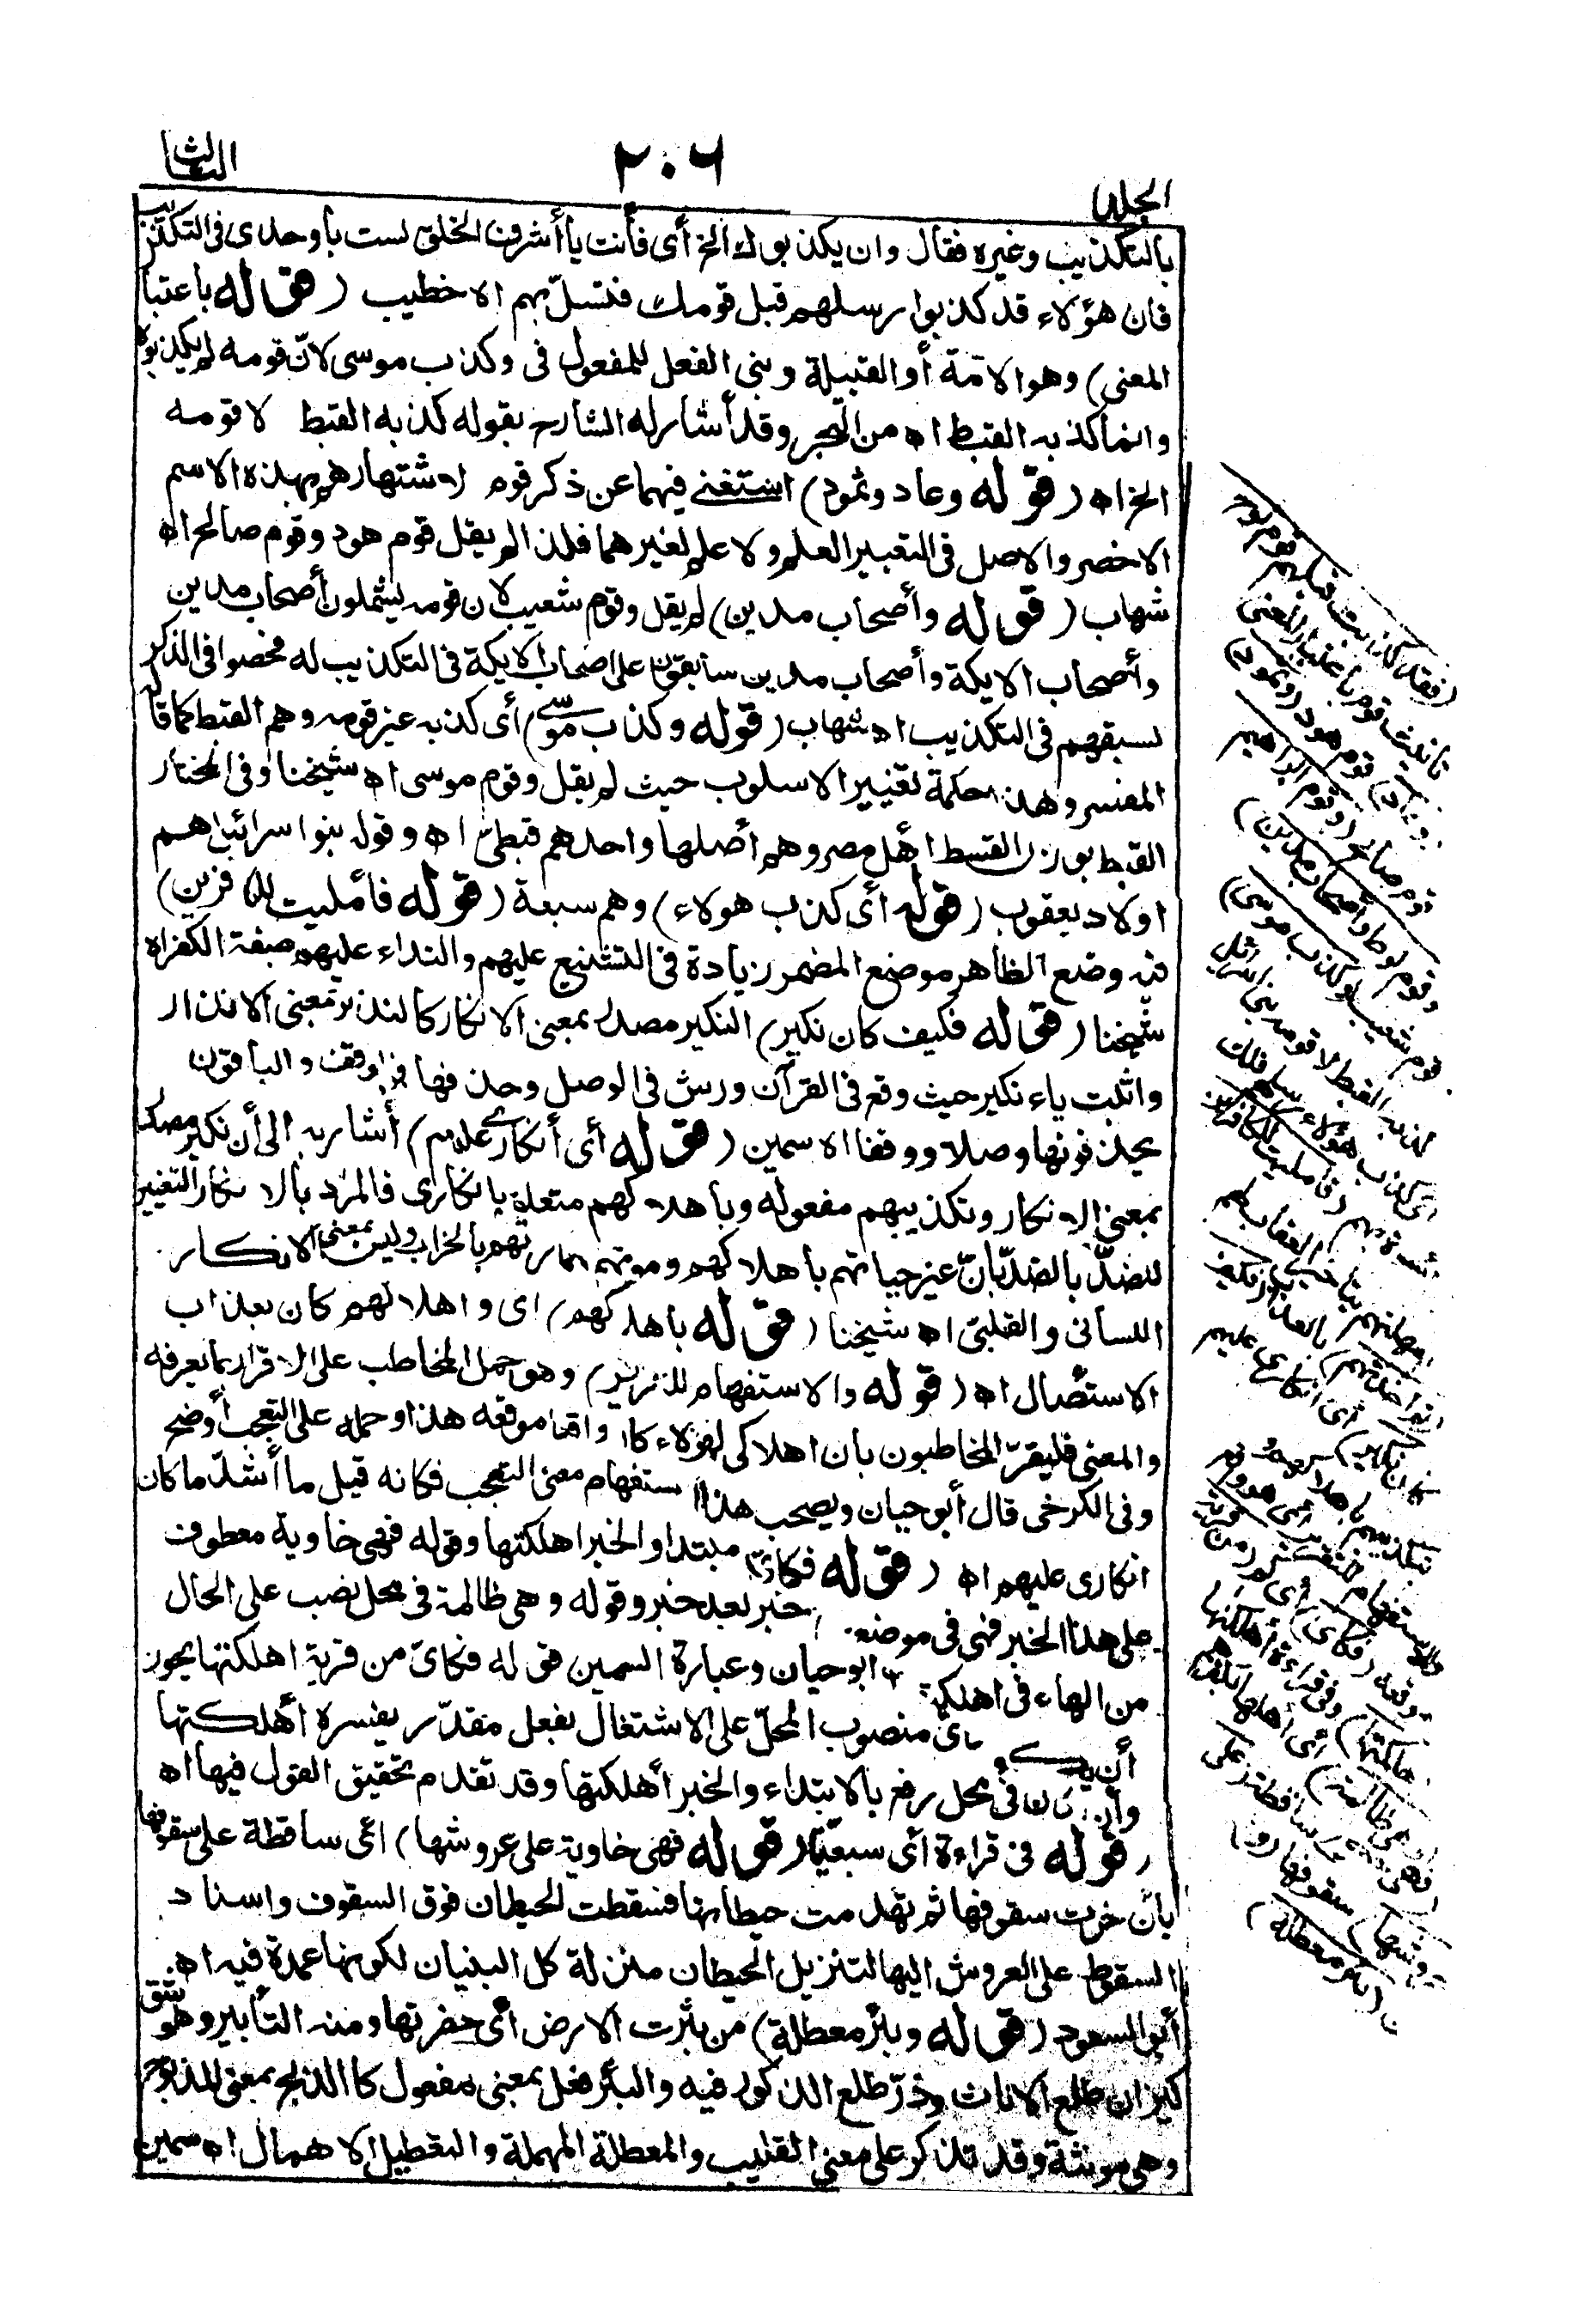 الجلد
٢٠٦
الثالث
بالتكذيب وغيره فقال وان يكذبوك الخ أى فأنت يا أشرف الخلق لست بأوحدى فى التكذيب
فان هؤلاء قد كذبوا رسلهم قبل قومك فتسلّ بهم اه خطيب (قوله باعتبار
المعنى) وهو الامّة أو القبيلة وبنى الفعل للمفعول فى وكذب موسى لانّ قومه لم يكذبوه
وانما كذبه القبط اه من البحر وقد أشار له الشارح بقوله كذبه القبط لا قومه
الخ اه (قوله وعاد وثمود) استغنى فيهما عن ذكر قوم لاشتهارهم بهذه الاسم
الاخصر والاصل فى التعبير العلم ولا علم لغيرهما فلذا لم يقل قوم هود وقوم صالح اه
شهاب (قوله وأصحاب مدين) لم يقل وقوم شعيب لان قومه يشملون أصحاب مدين
وأصحاب الايكة وأصحاب مدين سابقون على اصحاب الايكة فى التكذيب له فخصوا فى الذكر
لسبقهم فى التكذيب اه شهاب (قوله وكذب موسى) أى كذبه غير قومه وهم القبط كما قال
المفسر وهذا حكمة تغيير الاسلوب حيث لم يقل وقوم موسى اه شيخنا وفى المختار
القبط بوزن القسط أهل مصر وهم أصلها واحدهم قبطىّ اه وقوله بنو اسرائيل هم
اولاد يعقوب (قوله أى كذب هولاء) وهم سبعة (قوله فأمليت للكافرين)
فيه وضع الظاهر موضع المضمر زيادة فى التشنيع عليهم والنداء عليهم بصفة الكفر اه
شيخنا (قوله فكيف كان نكير) النكير مصدر بمعنى الانكار كالنذير بمعنى الانذار
واثبت ياء نكير حيث وقع فى القرآن ورش فى الوصل وحذفها فى الوقف والباقون
يحذفونها وصلا ووقفا اه سمين (قوله أى أنكارى عليهم) أشار به الى أن نكير مصدر
بمعنى الانكار وتكذيبهم مفعوله وباهلاكهم متعلق بانكارى فالمراد بالانكار التغيير
للضدّ بالضدّ بأنّ غير حياتهم باهلاكهم وموتهم وعمارتهم بالخراب وليس بمعنى الانكار
اللسانى والقلبىّ اه شيخنا (قوله باهلاكهم) اى واهلاكهم كان بعذاب
الاستئصال اه (قوله والاستفهام للتقرير) وهو حمل المخاطب على الاقرار بما يعرفه
والمعنى فليقرّ المخاطبون بان اهلاكى لهؤلاء كان واقعا موقعه هذا وحمله على التعجب أوضح
وفى الكرخى قال أبو حيان ويصحب هذا الاستفهام معنى التعجب فكانه قيل ما أشدّ ما كان
انكارى عليهم اه (قوله فكاىّ) مبتدا والخبر اهلكتها وقوله فهى خاوية معطوف
على هذا الخبر فهى فى موضع خبر بعد خبر وقوله وهى ظالمة فى محل نصب على الحال
من الهاء فى اهلكتها ابو حيان وعبارة السمين قوله فكاىّ من قرية اهلكتها يجوز
أن يكون منصوب المحلّ على الاشتغال بفعل مقدّر يفسره أهلكتها
وأن فى محل رفع بالابتداء والخبر أهلكتها وقد تقدم تحقيق القول فيها اه
(قوله فى قراءة أى سبعيّة (قوله فهى خاوية على عروشها) اى ساقطة على سقوفها
بأن خرت سقوفها ثم تهدمت حيطانها فسقطت الحيطان فوق السقوف واسناد
السقوط على العروش اليها لتنزيل الحيطان منزلة كل البنيان لكونها عمدة فيه اه
أبو السعود (قوله وبئر معطلة) من بئرت الارض أى حفرتها ومنه التأبير وهو شق
كيزان طلع الاناث وذرّ طلع الذكور فيه والبئر فعل بمعنى مفعول كالذبح بمعنى المذبوح
وهى مونثة وقد تذكر على معنى القليب والمعطلة المهملة والتعطيل الاهمال اه سمين
(فقد كذبت قبلهم قوم نوح)
تأنيث قوم باعتبار المعنى
(وعاد) قوم هود (وثمود)
قوم صالح (وقوم ابراهيم
وقوم لوط وأصحاب مدين)
قوم شعيب (وكذب موسى)
كذبه القبط لا قومه بنى اسرائيل
أى كذب هؤلاء رسلهم فلك
أسوة بهم (فأمليت للكافرين)
أمهلتهم بتأخير العقاب لهم
(ثم أخذتهم) بالعذاب (فكيف
كان نكير) أى انكارى عليهم
بتكذيبهم باهلاكهم
والاستفهام للتقرير أى هو واقع
موقعه (فكأىّ) أى كم (من قرية
أهلكتها) وفى قراءة أهلكناها
(وهى ظالمة) أى أهلها بكفرهم
(فهى خاوية) ساقطة (على
عروشها) سقوفها (و)
من (بئر معطلة)